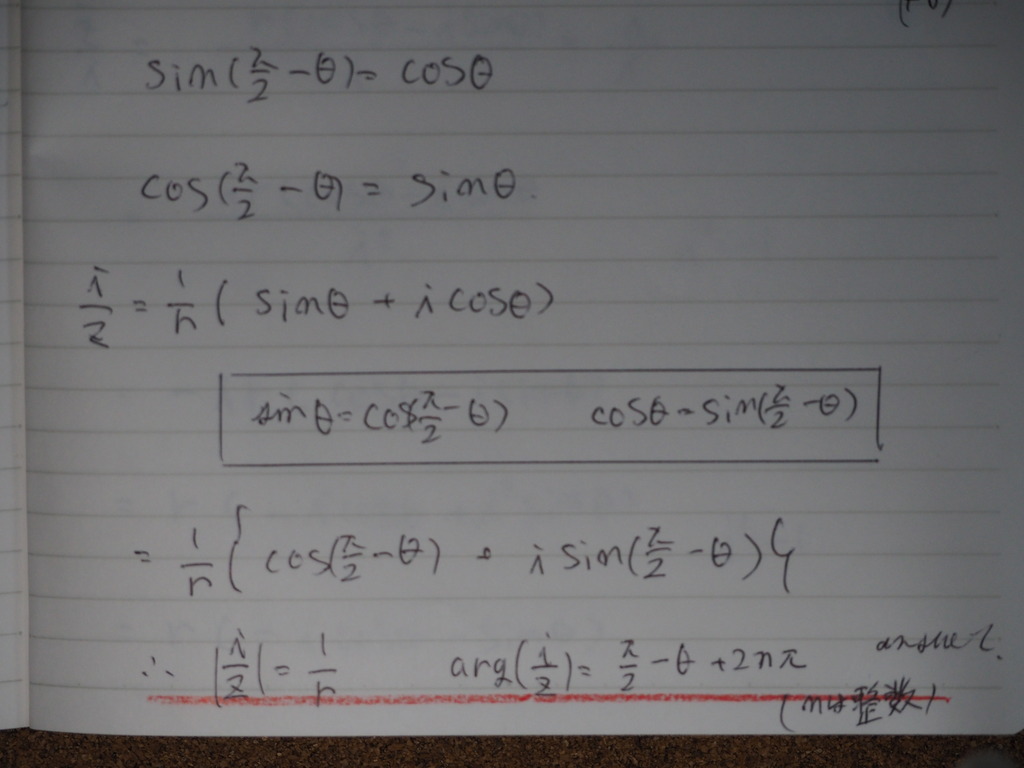 sin(π/2 - θ) = cosθ
cos(π/2 - θ) = sinθ.
i/z = 1/r ( sinθ + i cosθ)
sinθ = cos(π/2 - θ) cosθ = sin(π/2 - θ)
= 1/r { cos(π/2 - θ) + i sin(π/2 - θ) }
∴ |i/z| = 1/r arg(i/z) = π/2 - θ + 2nπ answer.
(nは整数)